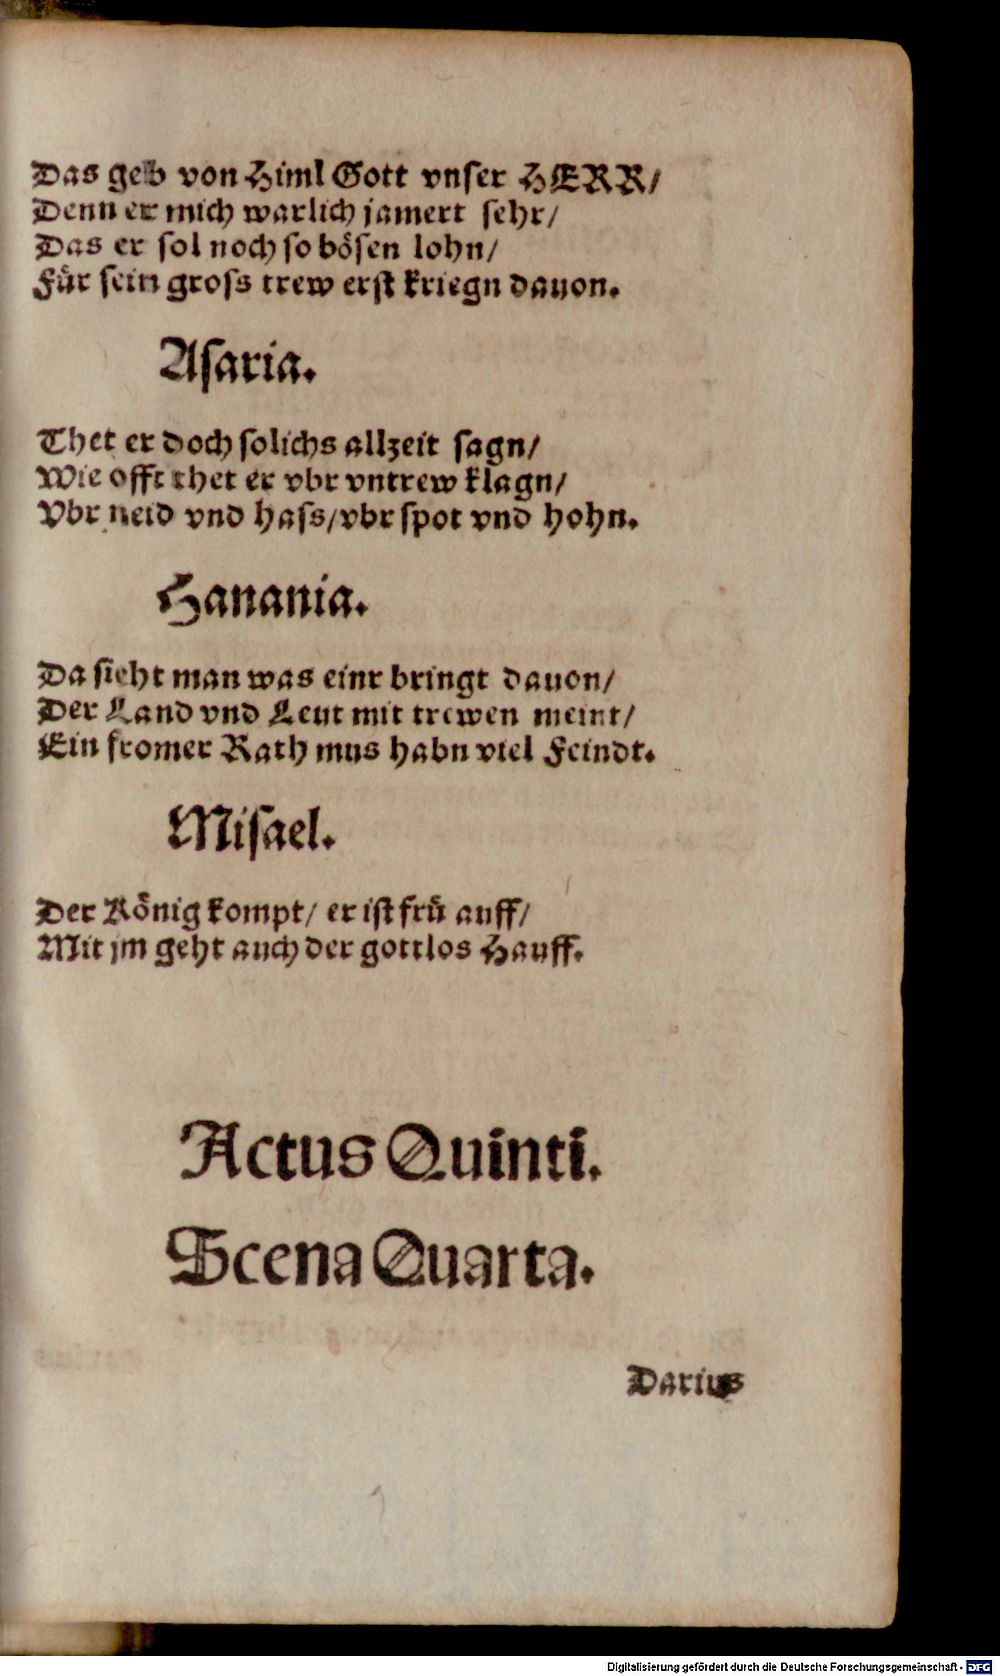 Das geb von Himl Gott vnſer HERR/
Denn er mich warlich jamert ſehr/
Das er ſol noch ſo böſen lohn/
Für ſein groſs trew erſt kriegn dauon.
Aſaria.
Thet er doch ſolichs allzeit ſagn/
Wie offt thet er vbr vntrew klagn/
Vbr neid vnd haſs/vbr ſpot vnd hohn.
Hanania.
Da ſieht man was einr bringt dauon/
Der Land vnd Leut mit trewen meint/
Ein fromer Rath mus habn viel Feindt.
Miſael.
Der König kompt/ er iſt frü auff/
Mit jm geht auch der gottlos Hauff.
Actus Quinti.
Scena Quarta.
Darius
Digitalisierung gefördert durch die Deutsche Forschungsgemeinschaft - DFG